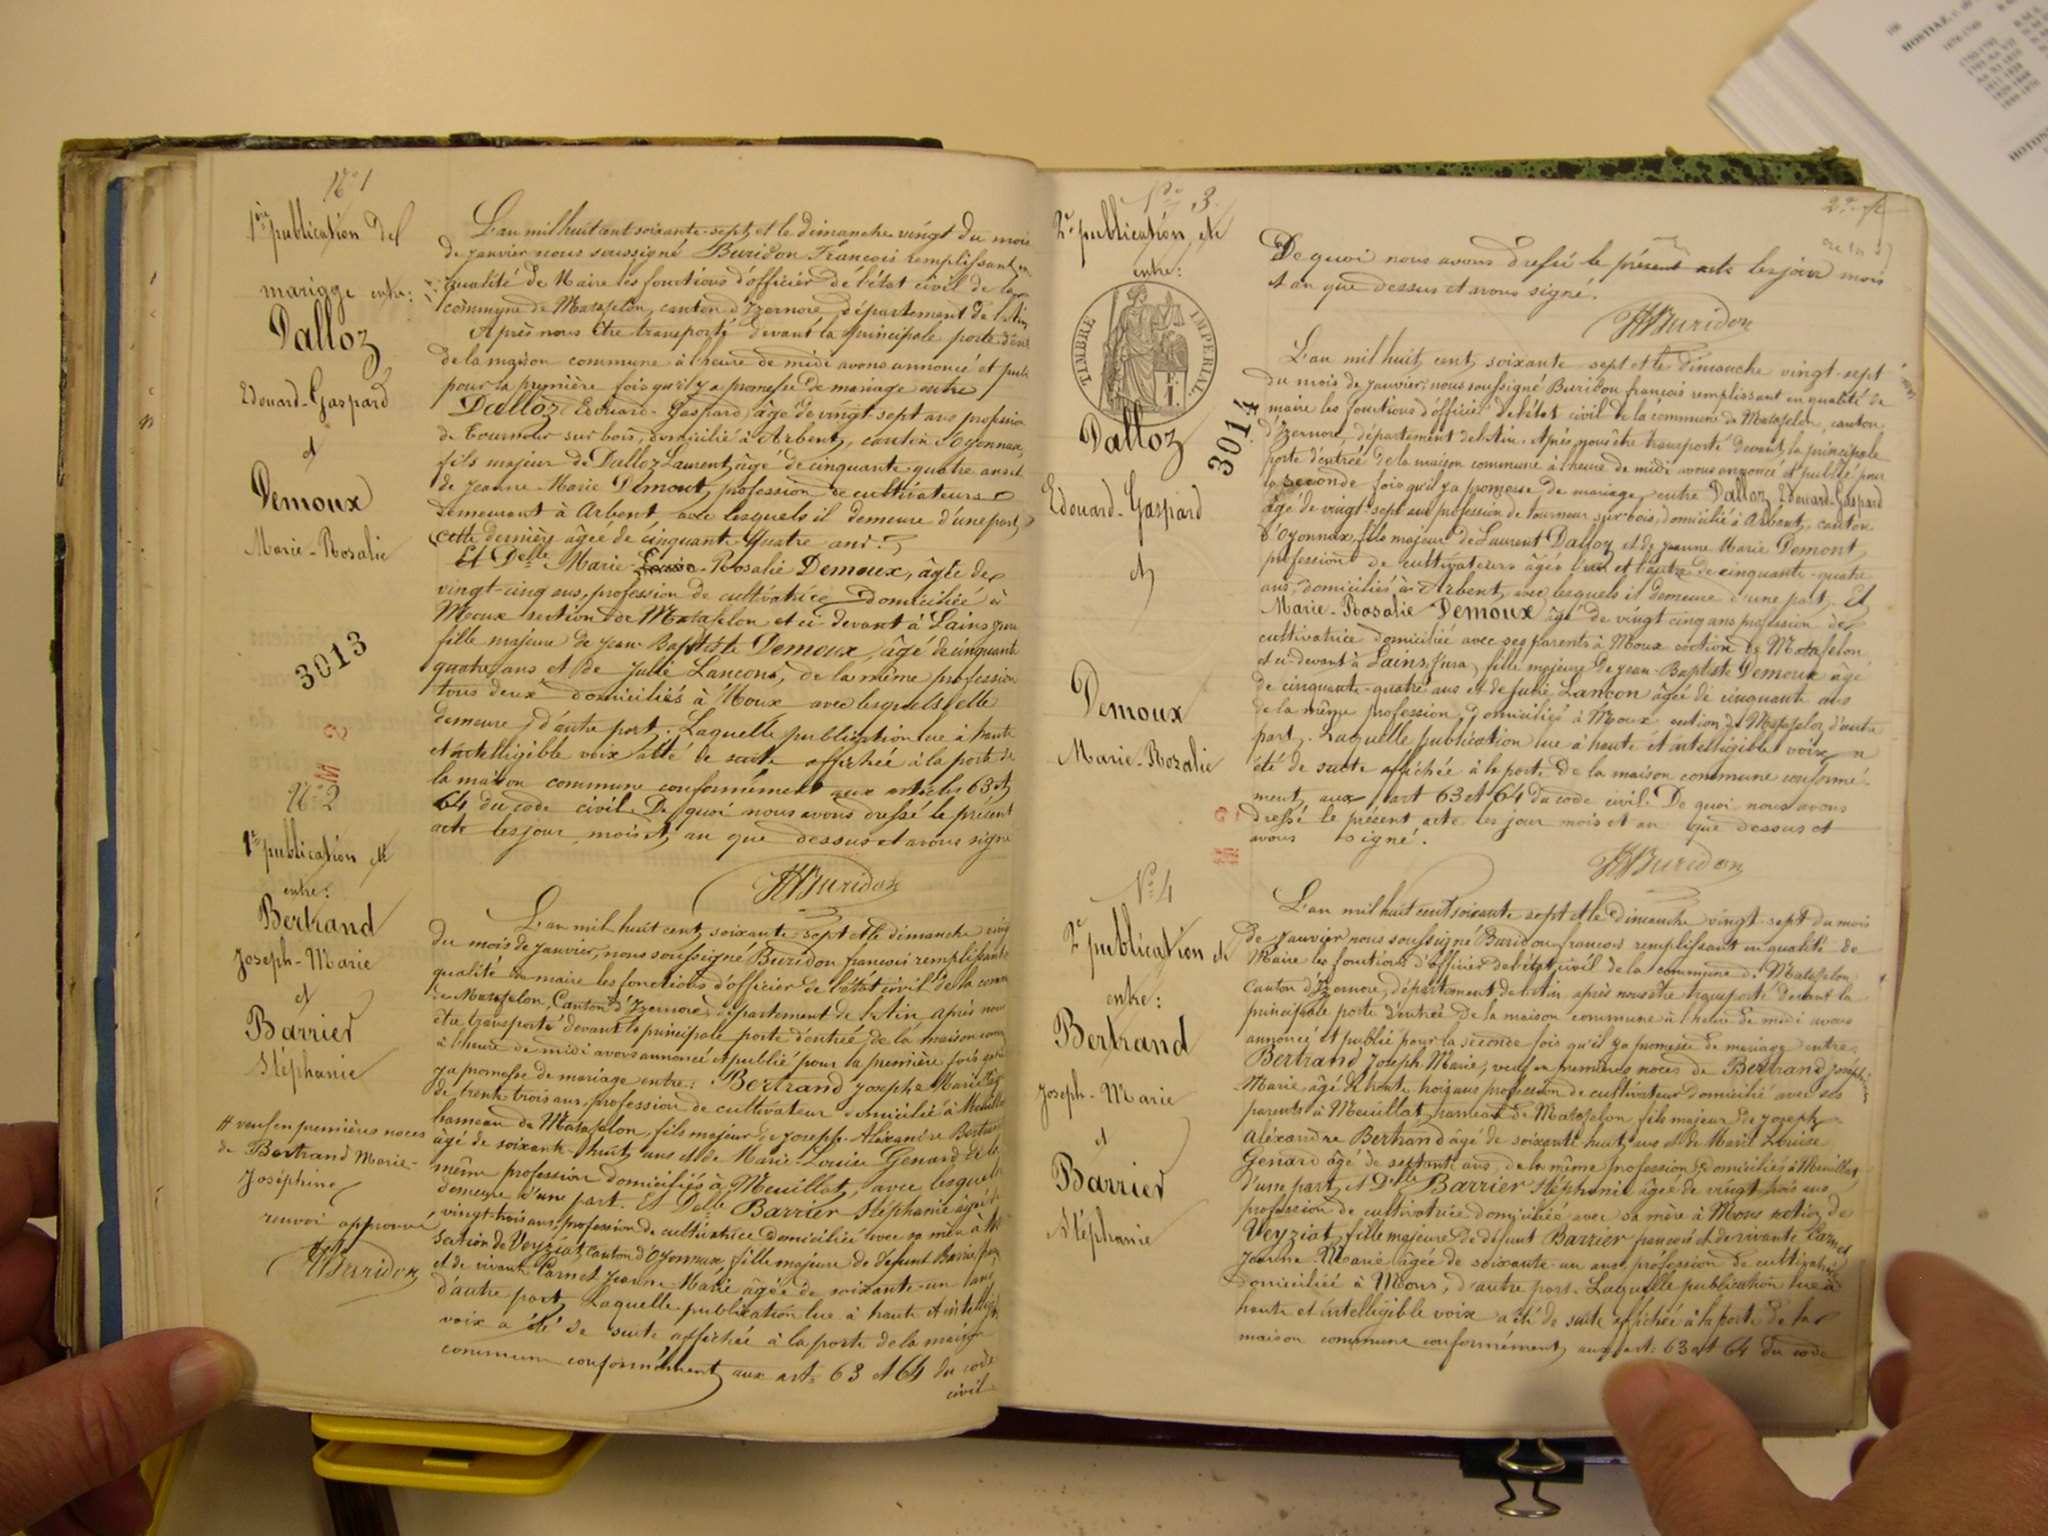 N° 1
1ère publication de
mariage entre:
Dalloz
Edouard-Gaspard
et
Demoux
Marie-Rosalie
3013
L'an mil huit cent soixante-sept et le dimanche vingt du mois
de janvier nous soussigné Buridon François remplissant en
qualité de Maire les fonctions d'officier de l'état civil de la
commune de Matafelon, canton d'Izernore, département de l'Ain
Après nous être transporté devant la principale porte d'en
de la maison commune à l'heure de midi avons annoncé et pub
pour la première fois qu'il y a promesse de mariage entre
Dalloz Edouard-Gaspard, âgé de vingt sept ans profession
de tourneur sur bois, domicilié à Arbent, canton d'Oyonnax,
fils majeur de Dalloz Laurent, âgé de cinquante-quatre ans et
de Jeanne-Marie Demont, profession de cultivateurs
demeurant à Arbent avec lesquels il demeure d'une part,
cette dernière âgée de cinquante-quatre ans.
Et Delle Marie-Rosalie Demoux, âgée de
vingt-cinq ans, profession de cultivatrice domiciliée à
Moux section de Matafelon et ci devant à Lains Jura
fille majeure de Jean Baptiste Demoux, âgé de cinquante
quatre ans et de Julie Lançon, de la même profession
tous deux domiciliés à Moux avec lesquels elle
demeure, d'autre part. Laquelle publication lue à haute
et intelligible voix a été de suite affichée à la porte de
la maison commune conformément aux articles 63 et
64 du code civil. De quoi nous avons dressé le présent
acte les jour mois et an que dessus et avons signé
Buridon
N° 2
1re publication de
entre:
Bertrand
Joseph-Marie
et
Barrier
Stéphanie
# veuf en premières noces
de Bertrand Marie-
Joséphine
renvoi approuvé
Buridon
L'an mil huit cent soixante-sept et le dimanche vingt
du mois de janvier, nous soussigné Buridon françois remplissant
qualité de maire les fonctions d'officier de l'état civil de la comm
de Matafelon, Canton d'Izernore, département de l'Ain, après nous
être transporté devant la principale porte d'entrée de la maison comm
à l'heure de midi avons annoncé et publié pour la première fois qu'il
y a promesse de mariage entre: Bertrand Joseph Marie âgé
de trente trois ans, profession de cultivateur domicilié à Meuillat
hameau de Matafelon, fils majeur de Joseph-Alexandre Bertrand
âgé de soixante-huit ans et de Marie-Louise Genard de la
même profession domiciliés à Meuillat, avec lesquels
demeure d'une part. Et Delle Barrier Stéphanie âgée de
vingt-trois ans, profession de cultivatrice domiciliée avec sa mère à
section de Veyziat, canton d'Oyonnax, fille majeure de défunt Barrier
et de vivante Carnet Jeanne-Marie âgée de soixante-un ans
d'autre part, Laquelle publication lue à haute et intelligi
voix a été de suite affichée à la porte de la maison
commune conformément aux art. 63 et 64 du code
civil
2e
N° 3
2e publication de
entre:
TIMBRE IMPERIAL
Dalloz
Edouard-Gaspard
et
Demoux
Marie-Rosalie
3014
De quoi nous avons dressé le présent acte les jour mois
et an que dessus et avons signé.
Buridon
L'an mil huit cent soixante sept et le dimanche vingt-sept
du mois de janvier, nous soussigné Buridon françois remplissant en qualité de
maire les fonctions d'officier de l'état civil de la commune de Matafelon, canton
d'Izernore, département de l'Ain. Après nous être transporté devant la principale
porte d'entrée de la maison commune à l'heure de midi avons annoncé et publié pour
la seconde fois qu'il y a promesse de mariage entre Dalloz Edouard-Gaspard
âgé de vingt-sept ans profession de tourneur sur bois, domicilié à Arbent, canton
d'Oyonnax, fils majeur de Laurent Dalloz et de Jeanne Marie Demont
profession de cultivateurs âgés l'un et l'autre de cinquante-quatre
ans, domiciliés à Arbent, avec lesquels il demeure d'une part. Et
Marie-Rosalie Demoux âgé de vingt cinq ans profession de
cultivatrice domiciliée avec ses parents à Moux section de Matafelon
et ci-devant à Lains, Jura, fille majeure de Jean-Baptiste Demoux âgé
de cinquante-quatre ans et de Julie Lançon âgée de cinquante ans
de la même profession, domiciliés à Moux section de Matafelon d'autre
part. Laquelle publication lue à haute et intelligible voix a
été de suite affichée à la porte de la maison commune conformé-
ment aux art 63 et 64 du code civil. De quoi nous avons
dressé le présent acte les jour mois et an que dessus et
avons signé.
Buridon
N° 4
2e publication de
entre:
Bertrand
Joseph-Marie
et
Barrier
Stéphanie
L'an mil huit cent soixante sept et le dimanche vingt-sept du mois
de janvier nous soussigné Buridon françois remplissant en qualité de
Maire les fonctions d'officier de l'état civil de la commune de Matafelon
canton d'Izernore, département de l'Ain après nous être transporté devant la
principale porte d'entrée de la maison commune à l'heure de midi avons
annoncé et publié pour la seconde fois qu'il y a promesse de mariage entre
Bertrand Joseph Marie, veuf en premières noces de Bertrand Joséphine
Marie âgé de trente trois ans profession de cultivateur domicilié avec ses
parents à Meuillat, hameau de Matafelon fils majeur de Joseph
Alexandre Bertrand âgé de soixante huit ans et de Marie Louise
Genard âgée de septante ans, de la même profession domiciliés à Meuillat
d'une part, et Delle Barrier Stéphanie âgée de vingt trois ans
profession de cultivatrice domiciliée avec sa mère à Mons section de
Veyziat, fille majeure de défunt Barrier françois et de vivante Carnet
Jeanne-Marie âgée de soixante-un ans, profession de cultivatrice
domiciliée à Mons, d'autre part. Laquelle publication lue à
haute et intelligible voix a été de suite affichée à la porte de la
maison commune conformément aux art. 63 et 64 du code
HOSTIAZ